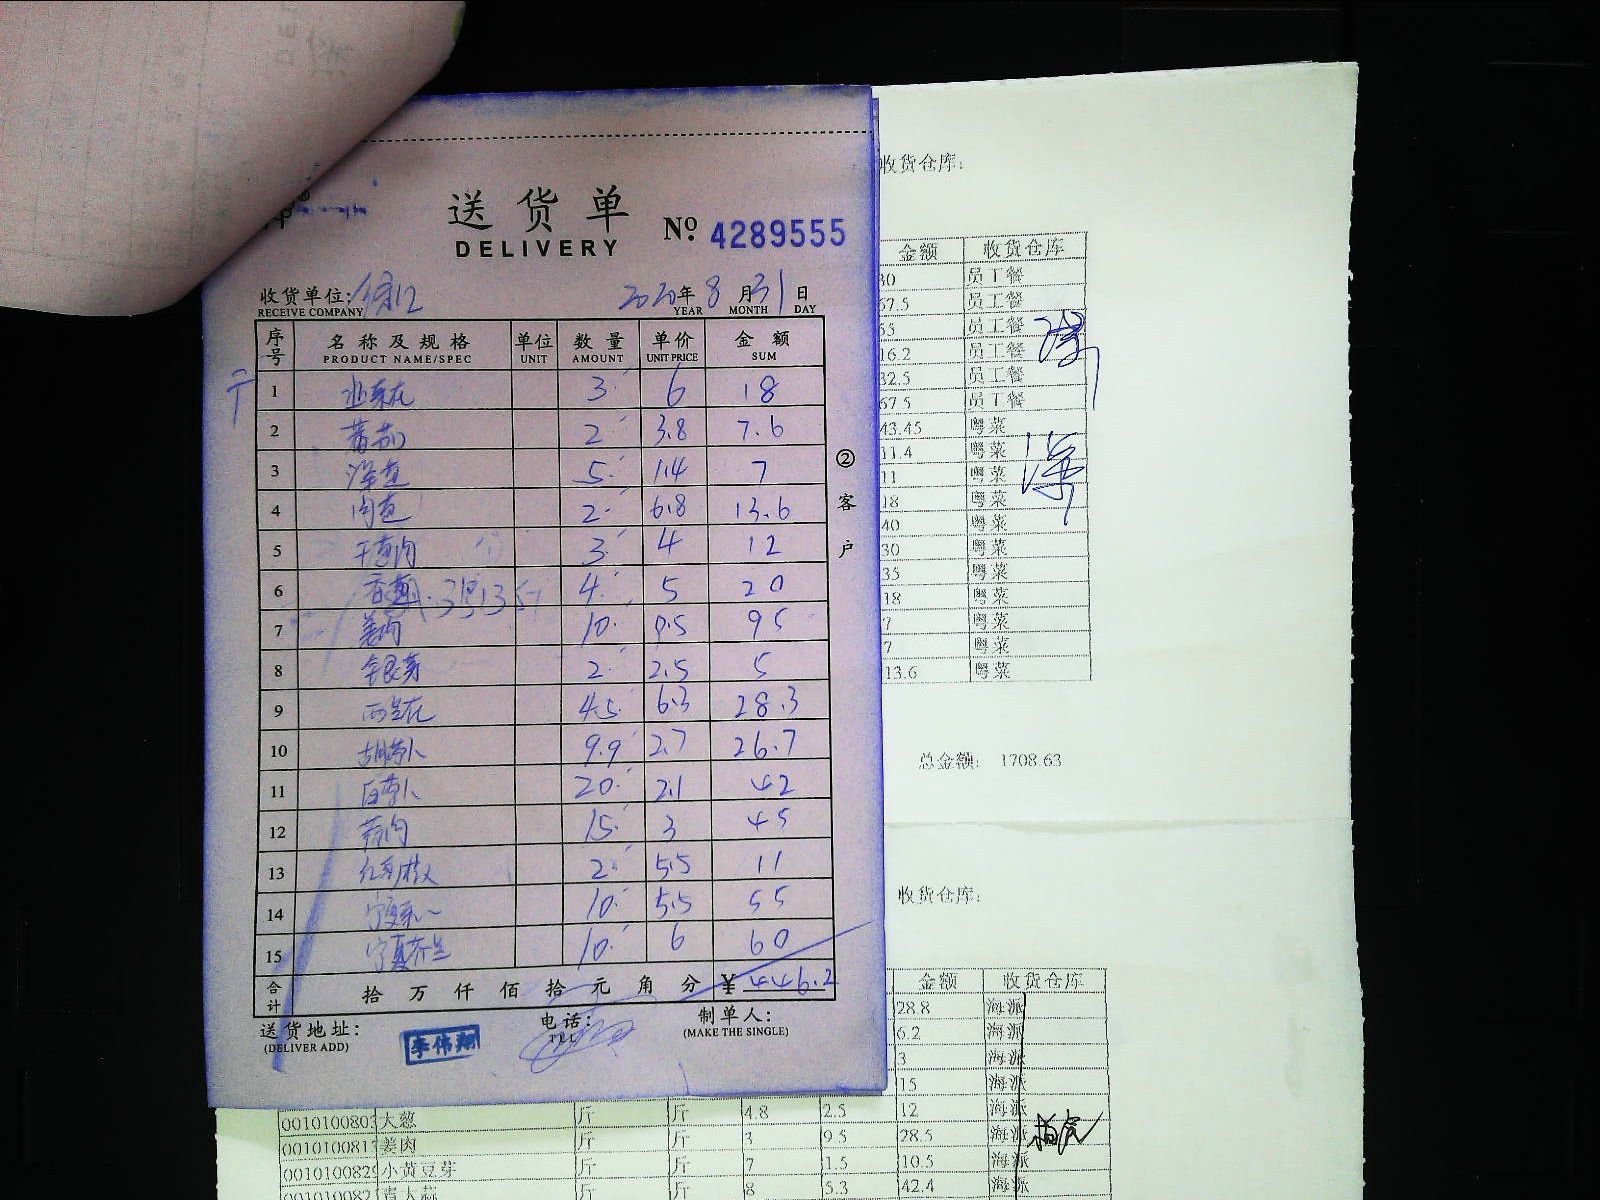 送货单
DELIVERY
No. 4289555
收货单位:
RECEIVE COMPANY
2020年8月31日
YEAR MONTH DAY
序号 名称及规格 单位 数量 单价 金额
PRODUCT NAME/SPEC UNIT AMOUNT UNIT PRICE SUM
1 3 6 18
2 蕃茄 2 3.8 7.6
3 洋葱 5 1.4 7
4 肉葱 2 6.8 13.6
5 干葱肉 3 4 12
6 香葱 4 5 20
7 姜肉 10 9.5 95
8 银芽 2 2.5 5
9 西兰花 4.5 6.3 28.3
10 胡萝卜 9.9 2.7 26.7
11 白萝卜 20 2.1 42
12 15 3 45
13 2 5.5 11
14 10 5.5 55
15 宁夏芥兰 10 6 60
合计 拾万仟佰拾元角分 ¥ 446.2
②客户
送货地址:
(DELIVER ADD)
李伟翔
电话:
TEL
制单人:
(MAKE THE SINGLE)
收货仓库:
金额 收货仓库
30 员工餐
67.5 员工餐
55 员工餐
16.2 员工餐
32.5 员工餐
67.5 员工餐
43.45 粤菜
11.4 粤菜
11 粤菜
18 粤菜
40 粤菜
30 粤菜
35 粤菜
18 粤菜
7 粤菜
7 粤菜
13.6 粤菜
总金额: 1708.63
收货仓库:
金额 收货仓库
28.8 海派
6.2 海派
3 海派
15 海派
大葱 斤 斤 4.8 2.5 12 海派
姜肉 斤 斤 3 9.5 28.5 海派
小黄豆芽 斤 斤 7 1.5 10.5 海派
青大蒜 斤 斤 8 5.3 42.4 海派